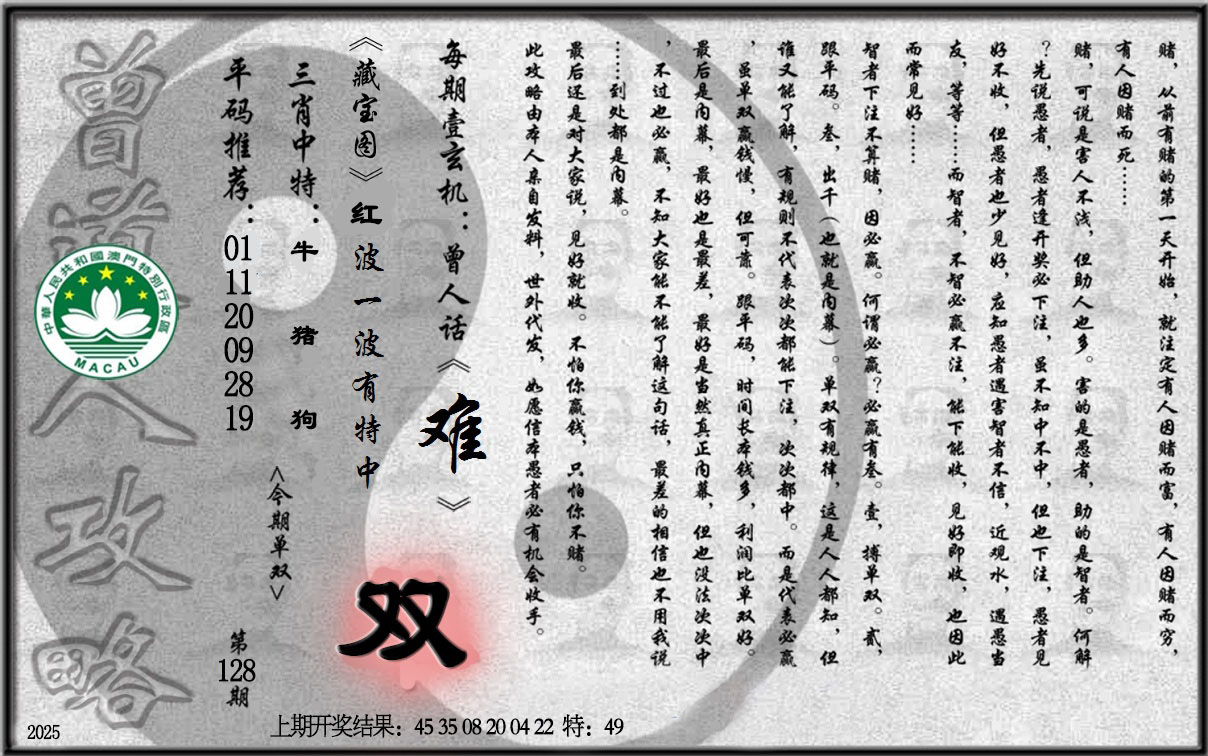 赌，从前有赌的第一天开始，就注定有人因赌而富，有人因赌而穷，
有人因赌而死……
赌，可说是害人不浅，但助人也多。害的是愚者，助的是智者。何解
？先说愚者，愚者逢开奖必下注，虽不知中不中，但也下注，愚者见
好不收，但愚者也少见好，应知愚者遇害智者不信，近观水，遇愚当
友，等等……而智者，不智必赢不注，能下能收，见好即收，也因此
而常见好……
智者下注不算赌，因必赢。何谓必赢？必赢有叁。壹，搏单双。贰，
跟平码。叁，出千（也就是内幕）。单双有规律，这是人人都知，但
谁又能了解，有规则不代表次次都能下注，次次都中。而是代表必赢
，虽单双赢钱慢，但可靠。跟平码，时间长本钱多，利润比单双好。
最后是内幕，最好也是最差，最好是当然真正内幕，但也没法次次中
，不过也必赢，不知大家能不能了解这句话，最差的相信也不用我说
……到处都是内幕。
最后还是对大家说，见好就收。不怕你赢钱，只怕你不赌。
此攻略由本人亲自发料，世外代发，如愿信本愚者必有机会收手。
每期壹玄机：曾人话《难》
《藏宝图》红波一波有特中
双
三肖中特：牛 猪 狗
<今期单双>
平码推荐：01 11 20 09 28 19
第128期
曾道人攻略
中華人民共和國澳門特別行政區
MACAU
2025
上期开奖结果：45 35 08 20 04 22 特：49